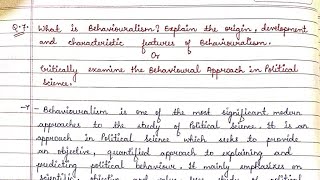 Q.7. What is Behaviouralism? Explain the origin, development
and characteristic features of Behaviouralism.
Or
Critically examine the Behavioural Approach in Political
Science.
→ - Behaviouralism is one of the most significant modern
approaches to the study of Political Science. It is an
approach in Political Science which seeks to provide
an objective, quantified approach to explaining and
predicting political behaviour. It mainly emphasizes on
scientific, objective and value free study of political